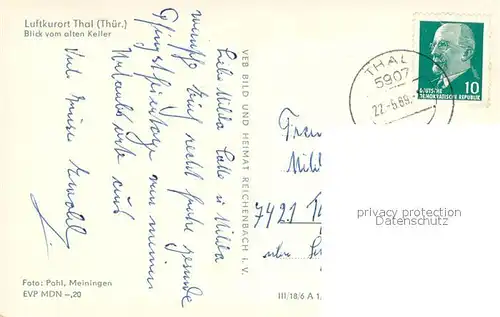 Luftkurort Thal (Thür.)
Blick vom alten Keller
Liebe Milda
wünsche Euch recht frohe gesunde
Pfingstfeiertage von meinem
Urlaubsorte aus
Viele Grüsse Ewald
Foto: Pohl, Meiningen
EVP MDN -,20
VEB BILD UND HEIMAT REICHENBACH i. V.
III/18/6 A 1,
THAL
5907
22.-5.69.
10
DEUTSCHE
DEMOKRATISCHE REPUBLIK
Frau
7421
privacy protection
Datenschutz